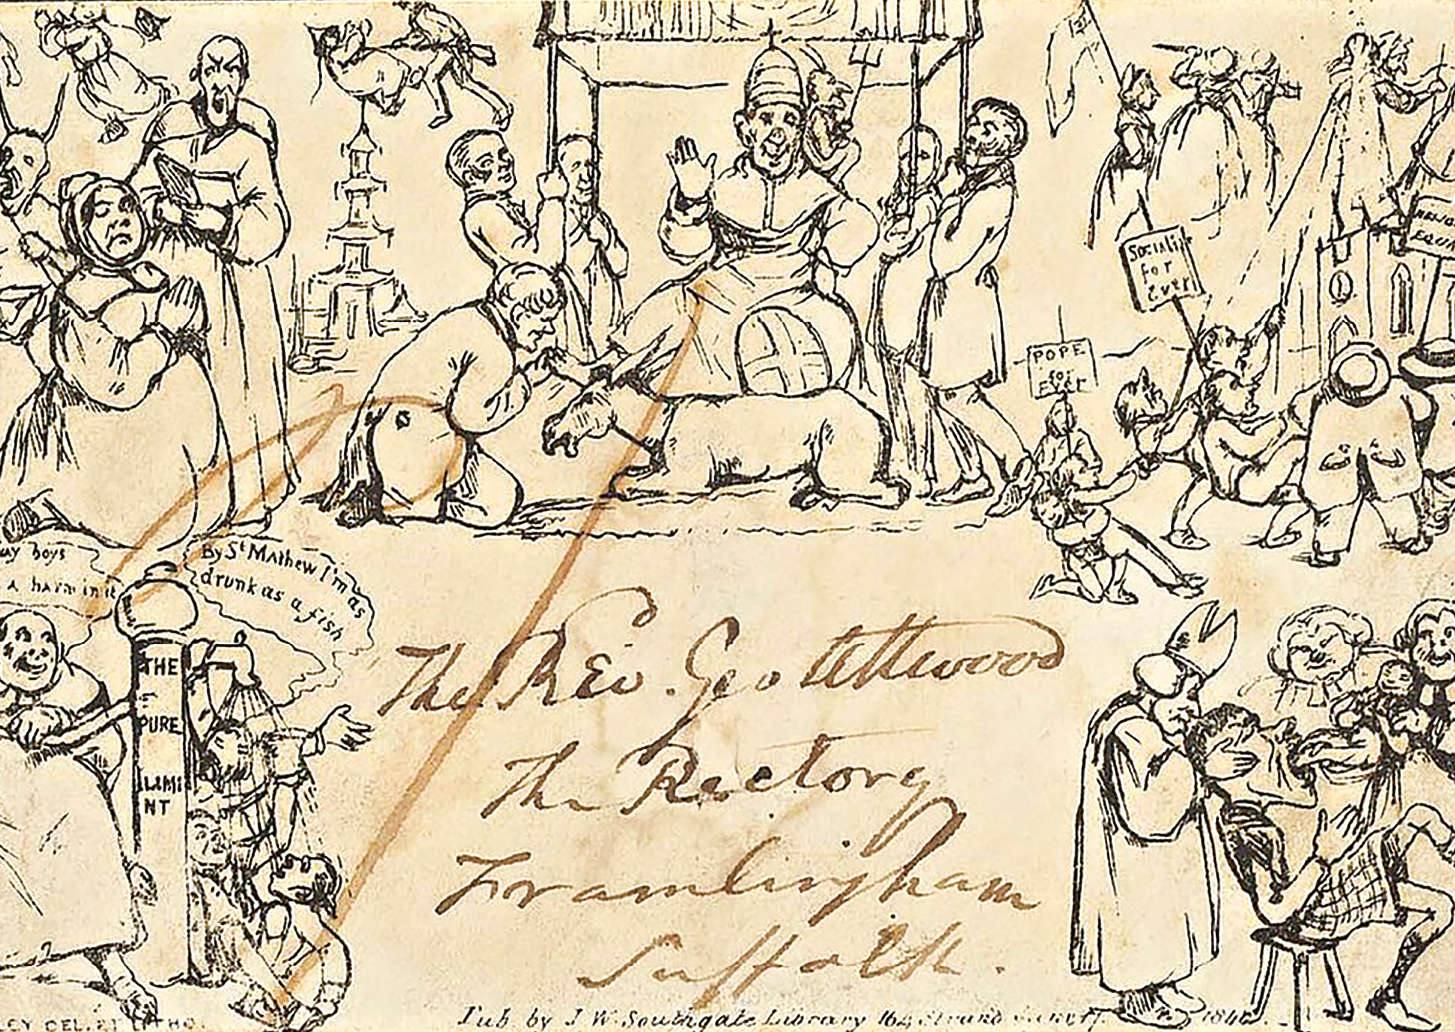 POPE
for
Ever
Socialism
For
Ever
boys
A harm in it
By St. Mathew I'm as
drunk as a fish
THE
PURE
LIMI
NT
The Rev. Geo Attwood
The Rectory
Framlingham
Suffolk.
LEY DEL. ET LITHO.
Pub by J. W. Southgate Library 164 Strand June 17. 1840